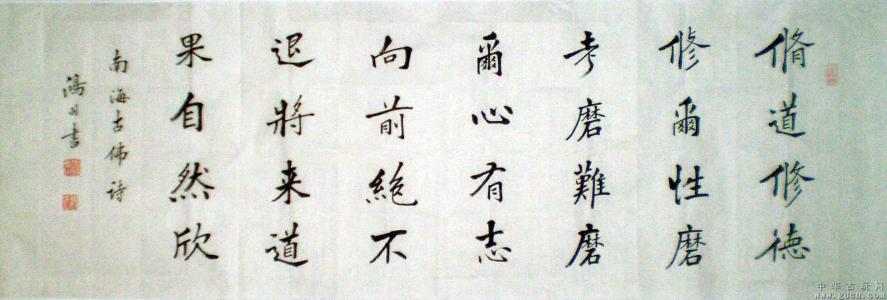 脩道修德
修爾性磨
考磨難磨
爾心有志
向前絶不
退將来道
果自然欣
南海古佛诗
书
中华古玩网
www.gucn.com